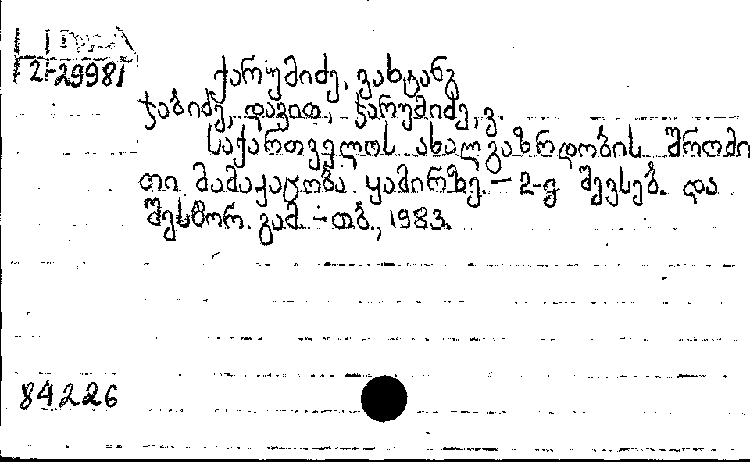 2-29981
ქარუმიძე, ვახტანგ
ჯაბიძე, დავით, ქარუმიძე, ვ.
საქართველოს ახალგაზრდობის შრომი
თი მამაცობა ყამირზე. - 2-ე შევსებ. და
შესწორ. გამ. - თბ., 1983.
84226